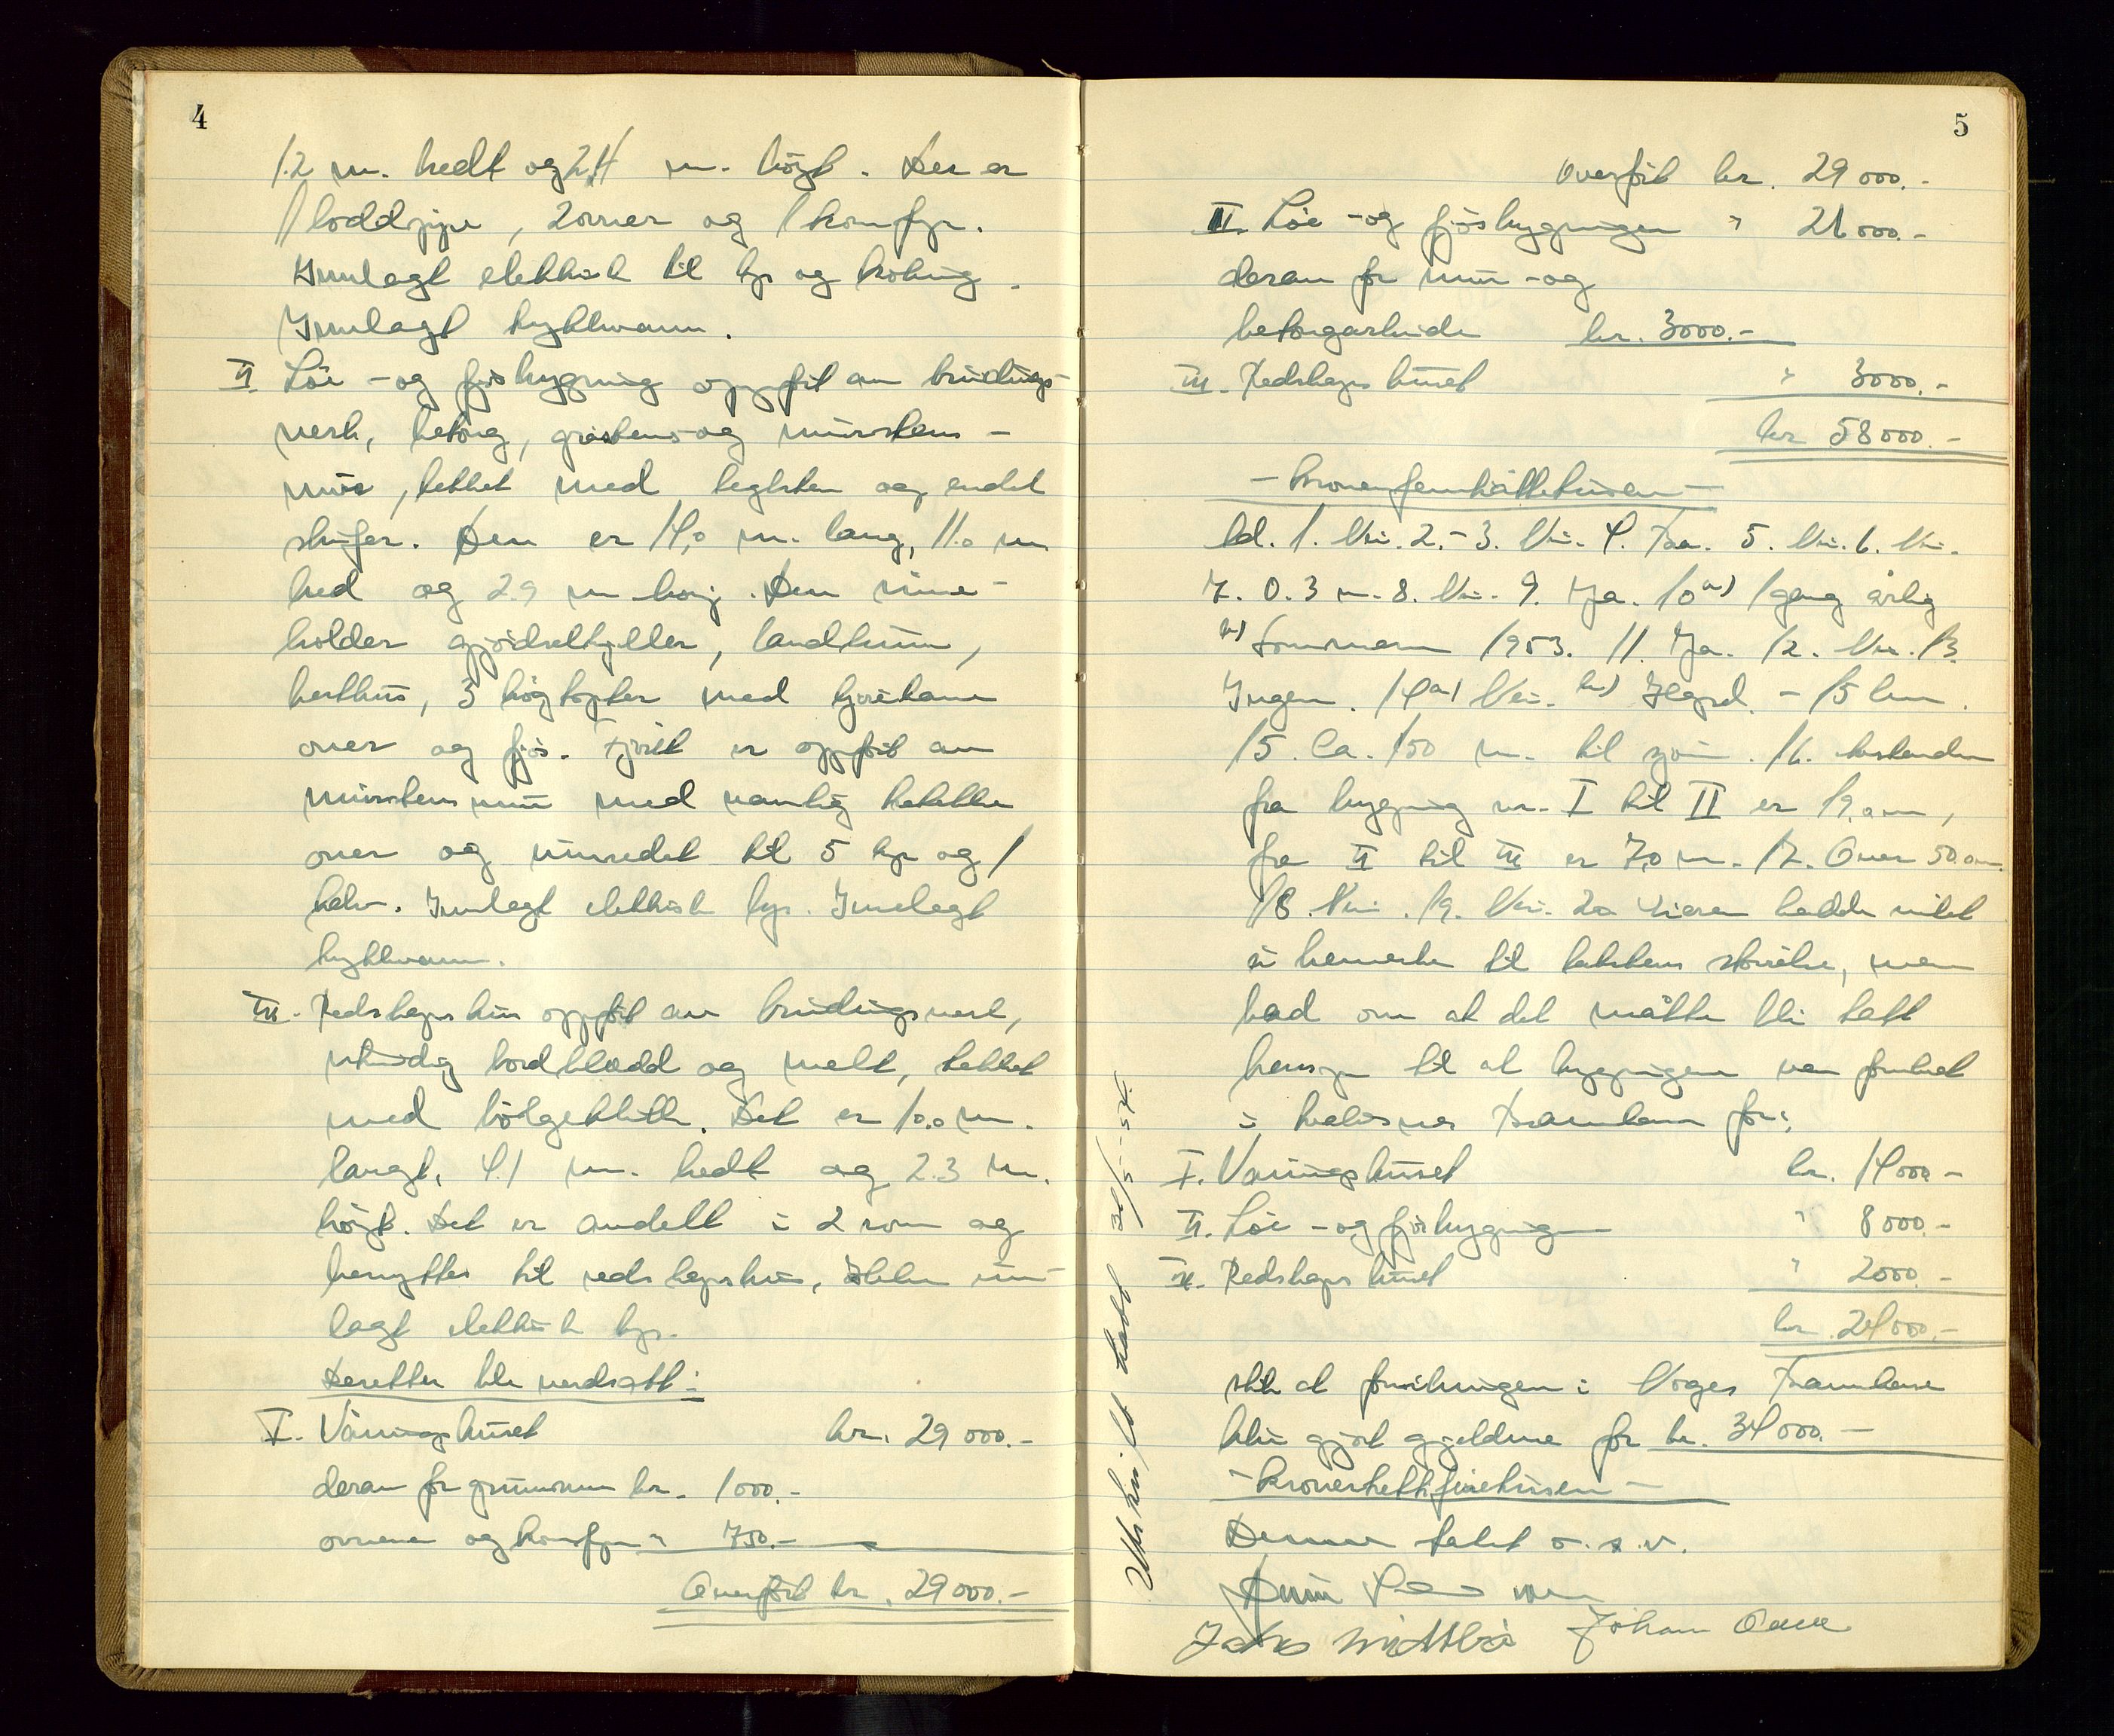 4
1.2 m. bredt og 2.4 m. høgt. Der er
1 loddpipe, 2 ovner og 1 komfyr.
Innlagt elektrisk til lys og koking.
Innlagt trykkvann.
II Løe - og fjøsbygning oppført av bindings-
verk, betong, gråsteins- og mursteins-
mur, tekket med teglsten og endel
skifer. Den er 14,0 m. lang, 11.0 m
bred og 2.9 m høg. Den inne-
holder gjødselkjeller, landkum,
hesthus, 3 høgtopter med kjørebane
over og fjøs. Fjøset er oppført av
murstens mur med vanlig
over og innredet til 5 kyr og 1
kalv. Innlagt elektrisk lys. Innlagt
trykkvann.
III. Redskapshus oppført av bindingsverk,
utvendig bordkledd og malt, tekket
med bølgeblikk. Det er 10.0 m.
langt, 4.1 m. bredt og 2.3 m.
høgt. Det er avdelt i 2 rom og
benyttes til redskapshus, ikke inn-
lagt elektrisk lys.
Deretter ble verdsatt:
I. Våningshuset kr. 29 000.-
derav for grunnmur kr. 1000.-
ovnene og komfyr " 750.-
Overført kr. 29 000.-
5
Overført kr. 29 000.-
II. Løe - og fjøsbygningen " 26 000.-
derav for mur - og
betongarbeide kr. 3000.-
III. Redskapshuset " 3000.-
kr 58 000.-
- kronerfemtiåttetusen -
Ad. 1. Nei. 2. - 3. Nei. 4. Bra. 5. Nei. 6. Nei.
7. 0.3 m. 8. Nei. 9. Ja. 10 a) 1 gang årlig
b) Sommeren 1953. 11. Ja. 12. Nei. 13.
Ingen. 14 a) Nei. b) - 15 km.
15. Ca. 150 m. til sjø. 16. Avstanden
fra bygning nr. I til II er 19.0 m,
fra II til III er 7,0 m. 17. Over 50.0 m
18. Nei. 19. Nei. 20. Eieren hadde intet
å bemerke til takstens størrelse, men
bad om at det måtte bli tatt
hensyn til at bygningene var forsikret
i Brannkasse for:
I. Våningshuset kr. 14 000 -
II. Løe - og fjøsbygningen " 8 000.-
III. Redskapshuset " 2000.-
kr. 24 000.-
slik at forsikringen i Norges Brannkasse
blir gjort gjeldene for kr. 34 000.-
- kronertrettifiretusen -
Denne takst o. s. v.
Johan
Utskrift tatt 31/5-54.